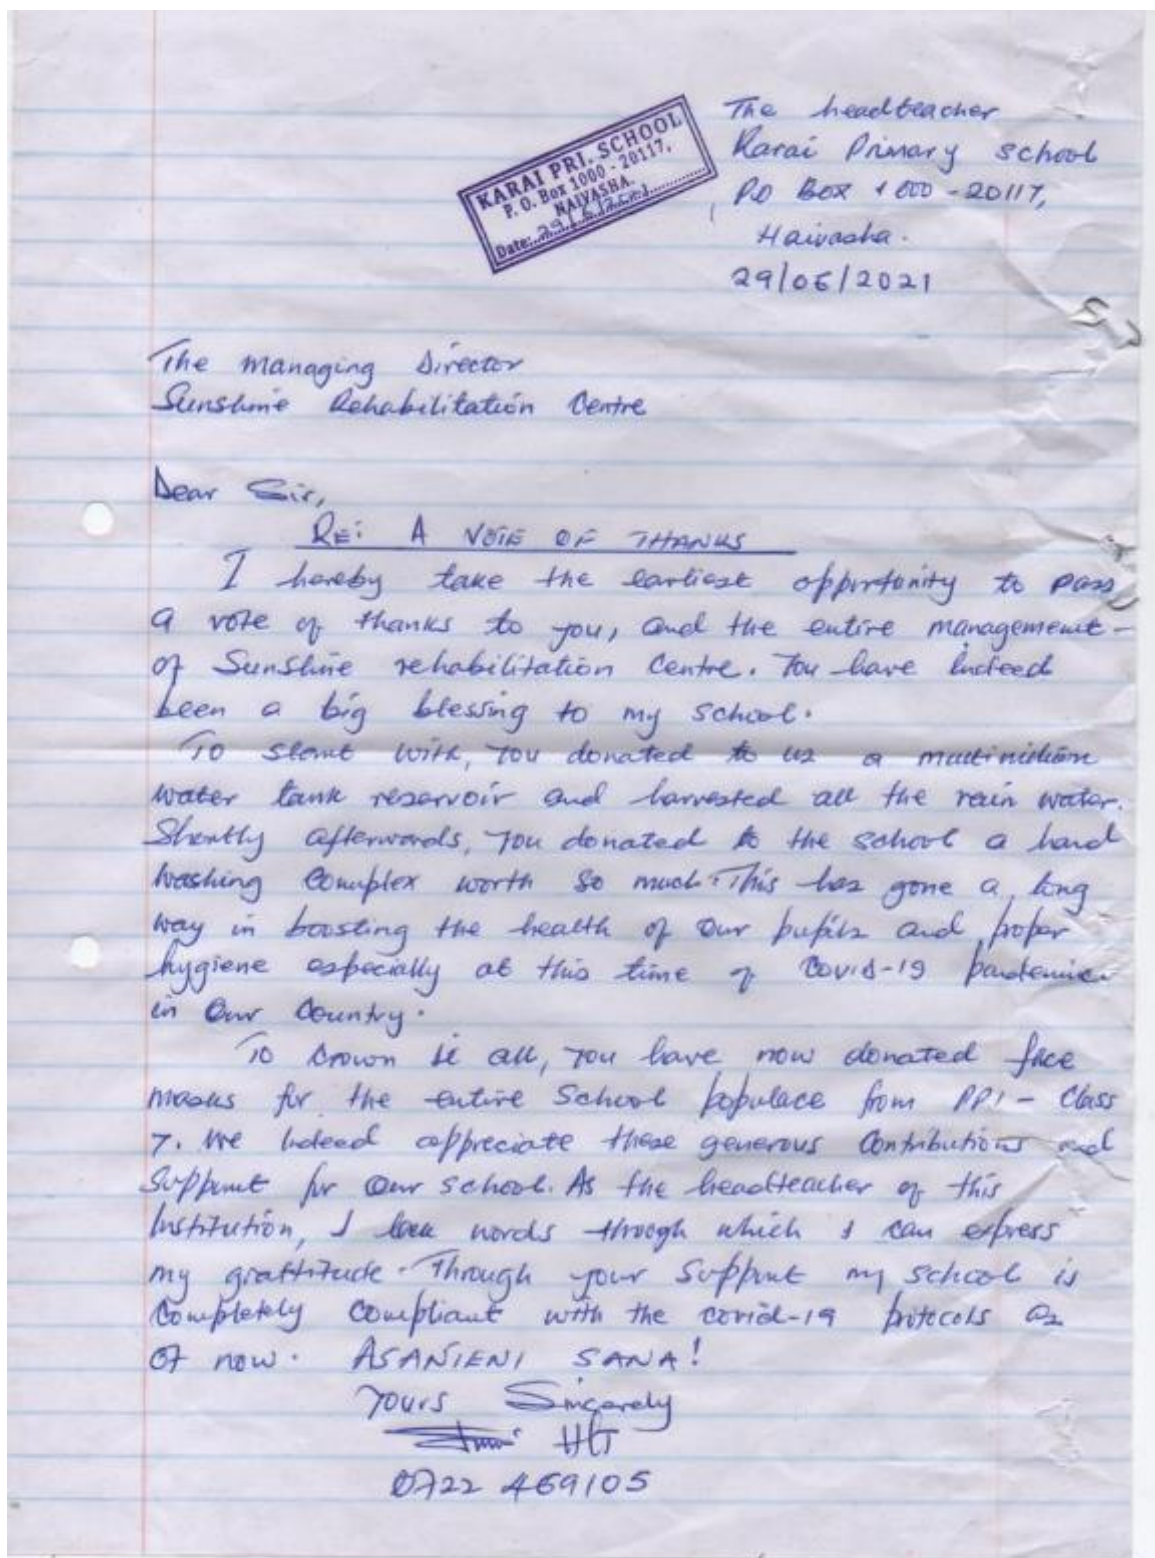 The headteacher
Karai Primary school
P.O Box 1000 - 20117,
Naivasha.
29/06/2021
KARAI PRI. SCHOOL
P. O. Box 1000 - 20117,
NAIVASHA.
Date: 29/6/2021
The Managing Director
Sunshine Rehabilitation Centre
Dear Sir,
RE: A VOTE OF THANKS
I hereby take the earliest opportunity to pass
a vote of thanks to you, and the entire management
of Sunshine rehabilitation Centre. You have indeed
been a big blessing to my school.
To start with, you donated to us a multimillion
water tank reservoir and harvested all the rain water.
Shortly afterwards, you donated to the school a hand
washing complex worth so much. This has gone a long
way in boosting the health of our pupils and proper
hygiene especially at this time of Covid-19 pandemic
in our country.
To crown it all, you have now donated face
masks for the entire school populace from PP1 - Class
7. We indeed appreciate these generous contributions and
support for our school. As the headteacher of this
institution, I lack words through which I can express
my grattitude. Through your support my school is
completely compliant with the covid-19 protocols as
of now. ASANIENI SANA!
Yours Sincerely
H/T
0722 469105